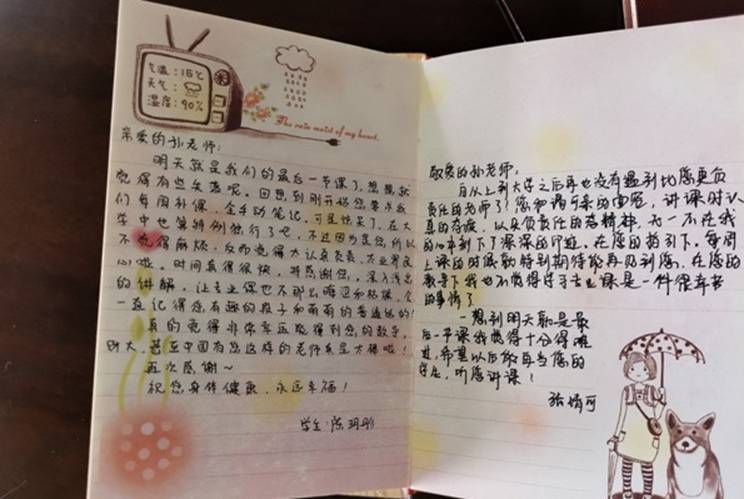 气温:16℃
天气:
湿度:90%
The rain moist of my heart.
亲爱的孙老师:
明天就是我们的最后一节课了,想想就
觉得有些失落呢。回想到刚开始您要求我
们每周补课,全手动笔记,可是惊呆了,在大
学中也算特例独行了吧,不过因为是您,所以
不觉得麻烦,反而觉得太认真负责,太业界良
心啦。时间真得很快,特感谢您,深入浅出
的讲解,让专业课也不那么晦涩和枯燥,会
一直记得您有趣的段子和萌萌的普通话的!
真的觉得非常幸运能得到您的教导,
师大,甚至中国有您这样的老师真是太棒啦!
再次感谢~
祝您身体健康,永远幸福!
学生:陈玥彤
敬爱的孙老师:
自从上到大学之后再也没有遇到比您更负
责任的老师了!您和谒可亲的面容,讲课时认
真的态度,以及负责任的态精神,无一不在我
的心中刻下了深深的印迹。在您的指引下,每周
上课的时候都特别期待能再见到您,在您的
教导下我也不觉得学专业课是一件很辛苦
的事情了
一想到明天就是最
后一节课我觉得十分得难
过,希望以后能再当您的
学生,听您讲课!
张婧可